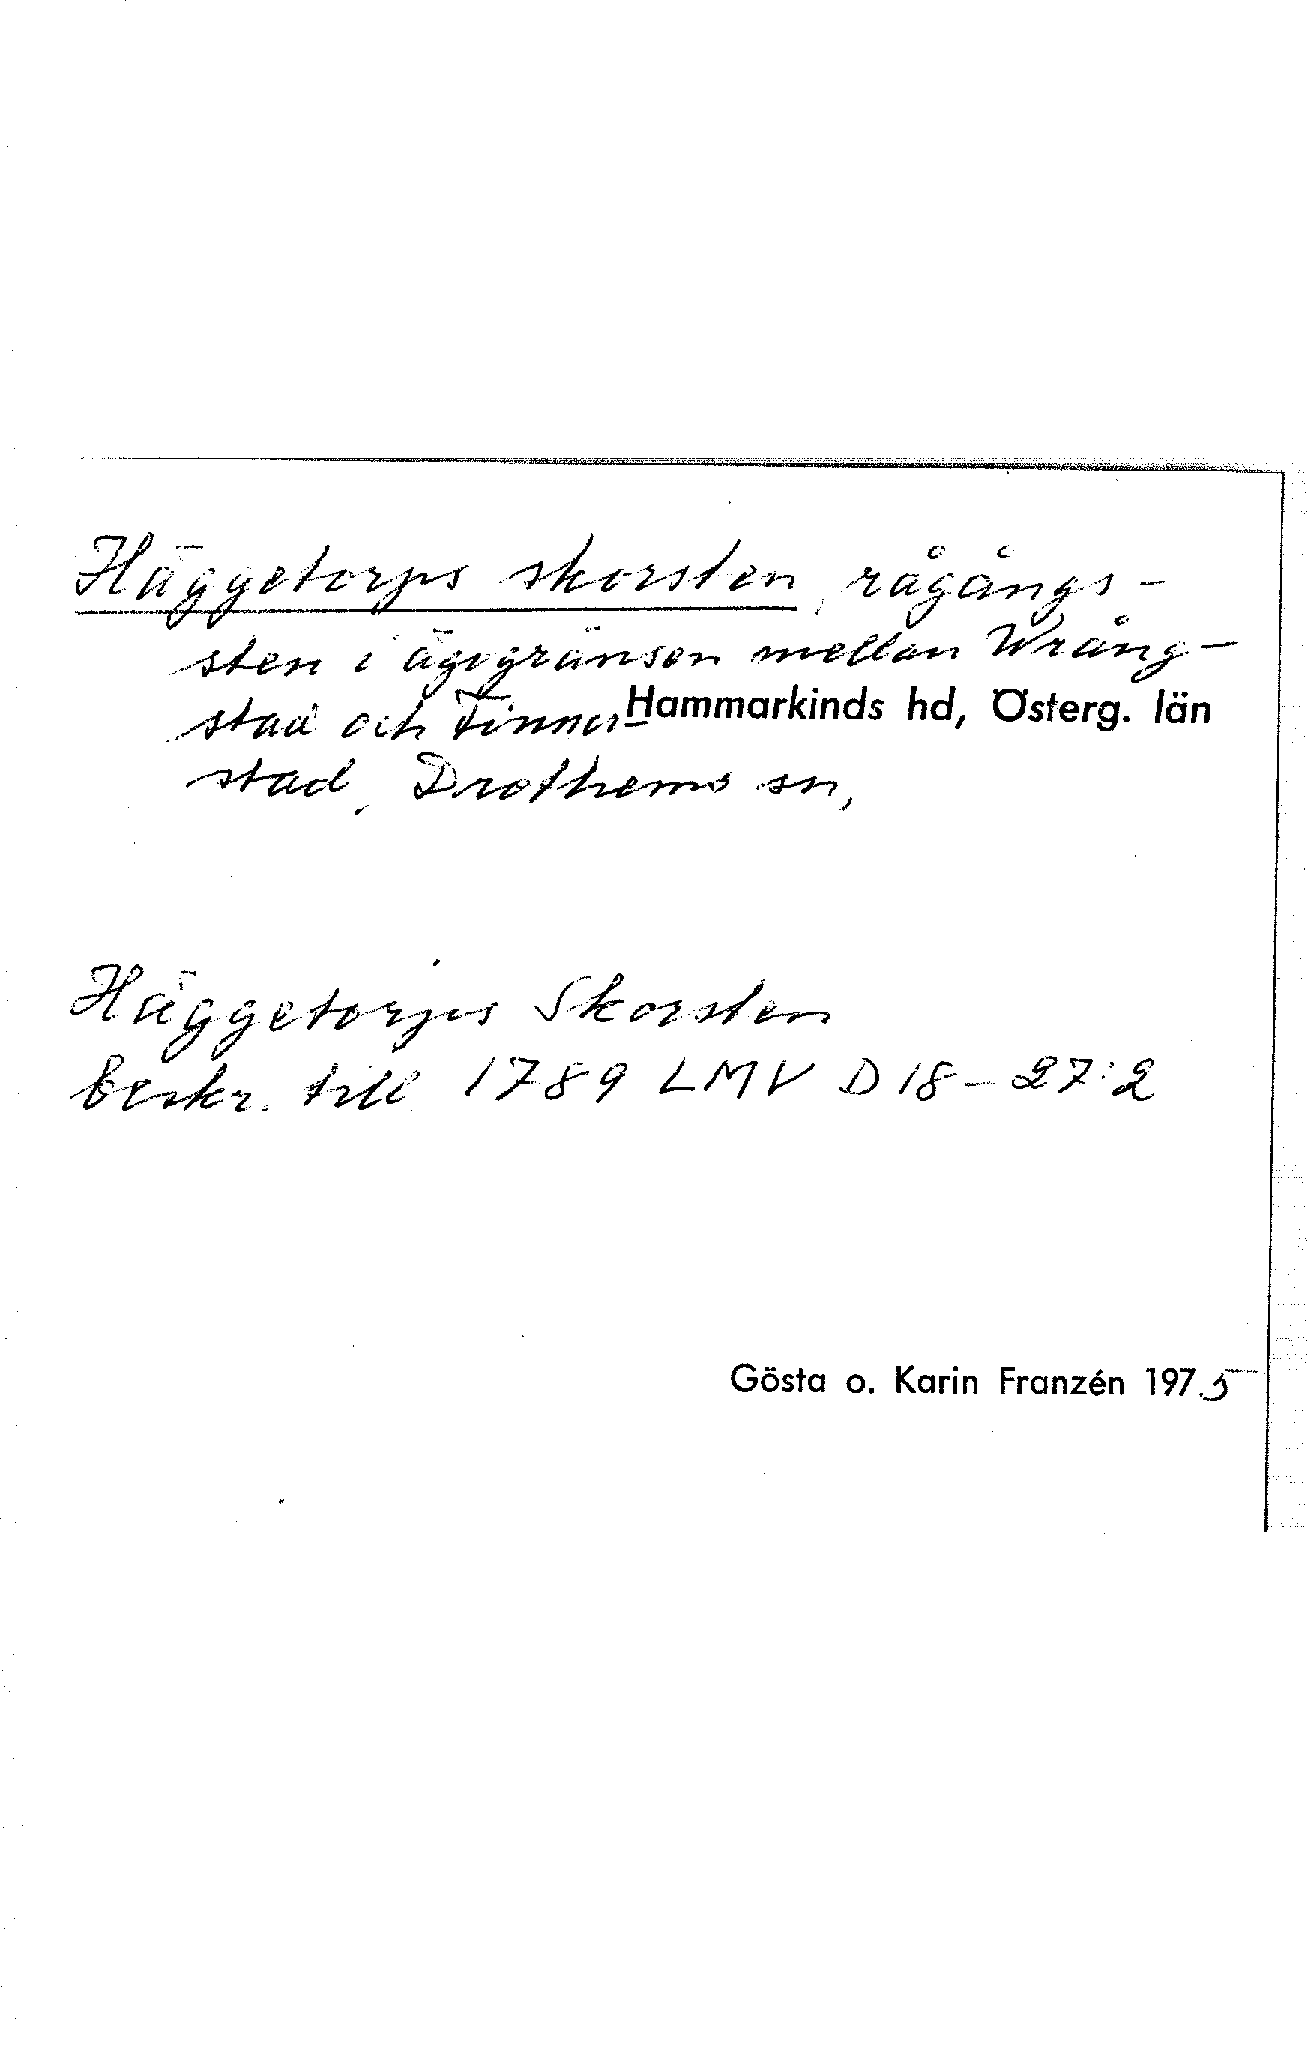 Häggetorps skorsten, rågångs-
sten i ägogränsen mellan Wrång-
stad och Finner- Hammarkinds hd, Österg. län
stad, Drothems sn,
Häggetorps Skorsten
beskr. till 1789 LMV D 18-27:2
Gösta o. Karin Franzén 1975